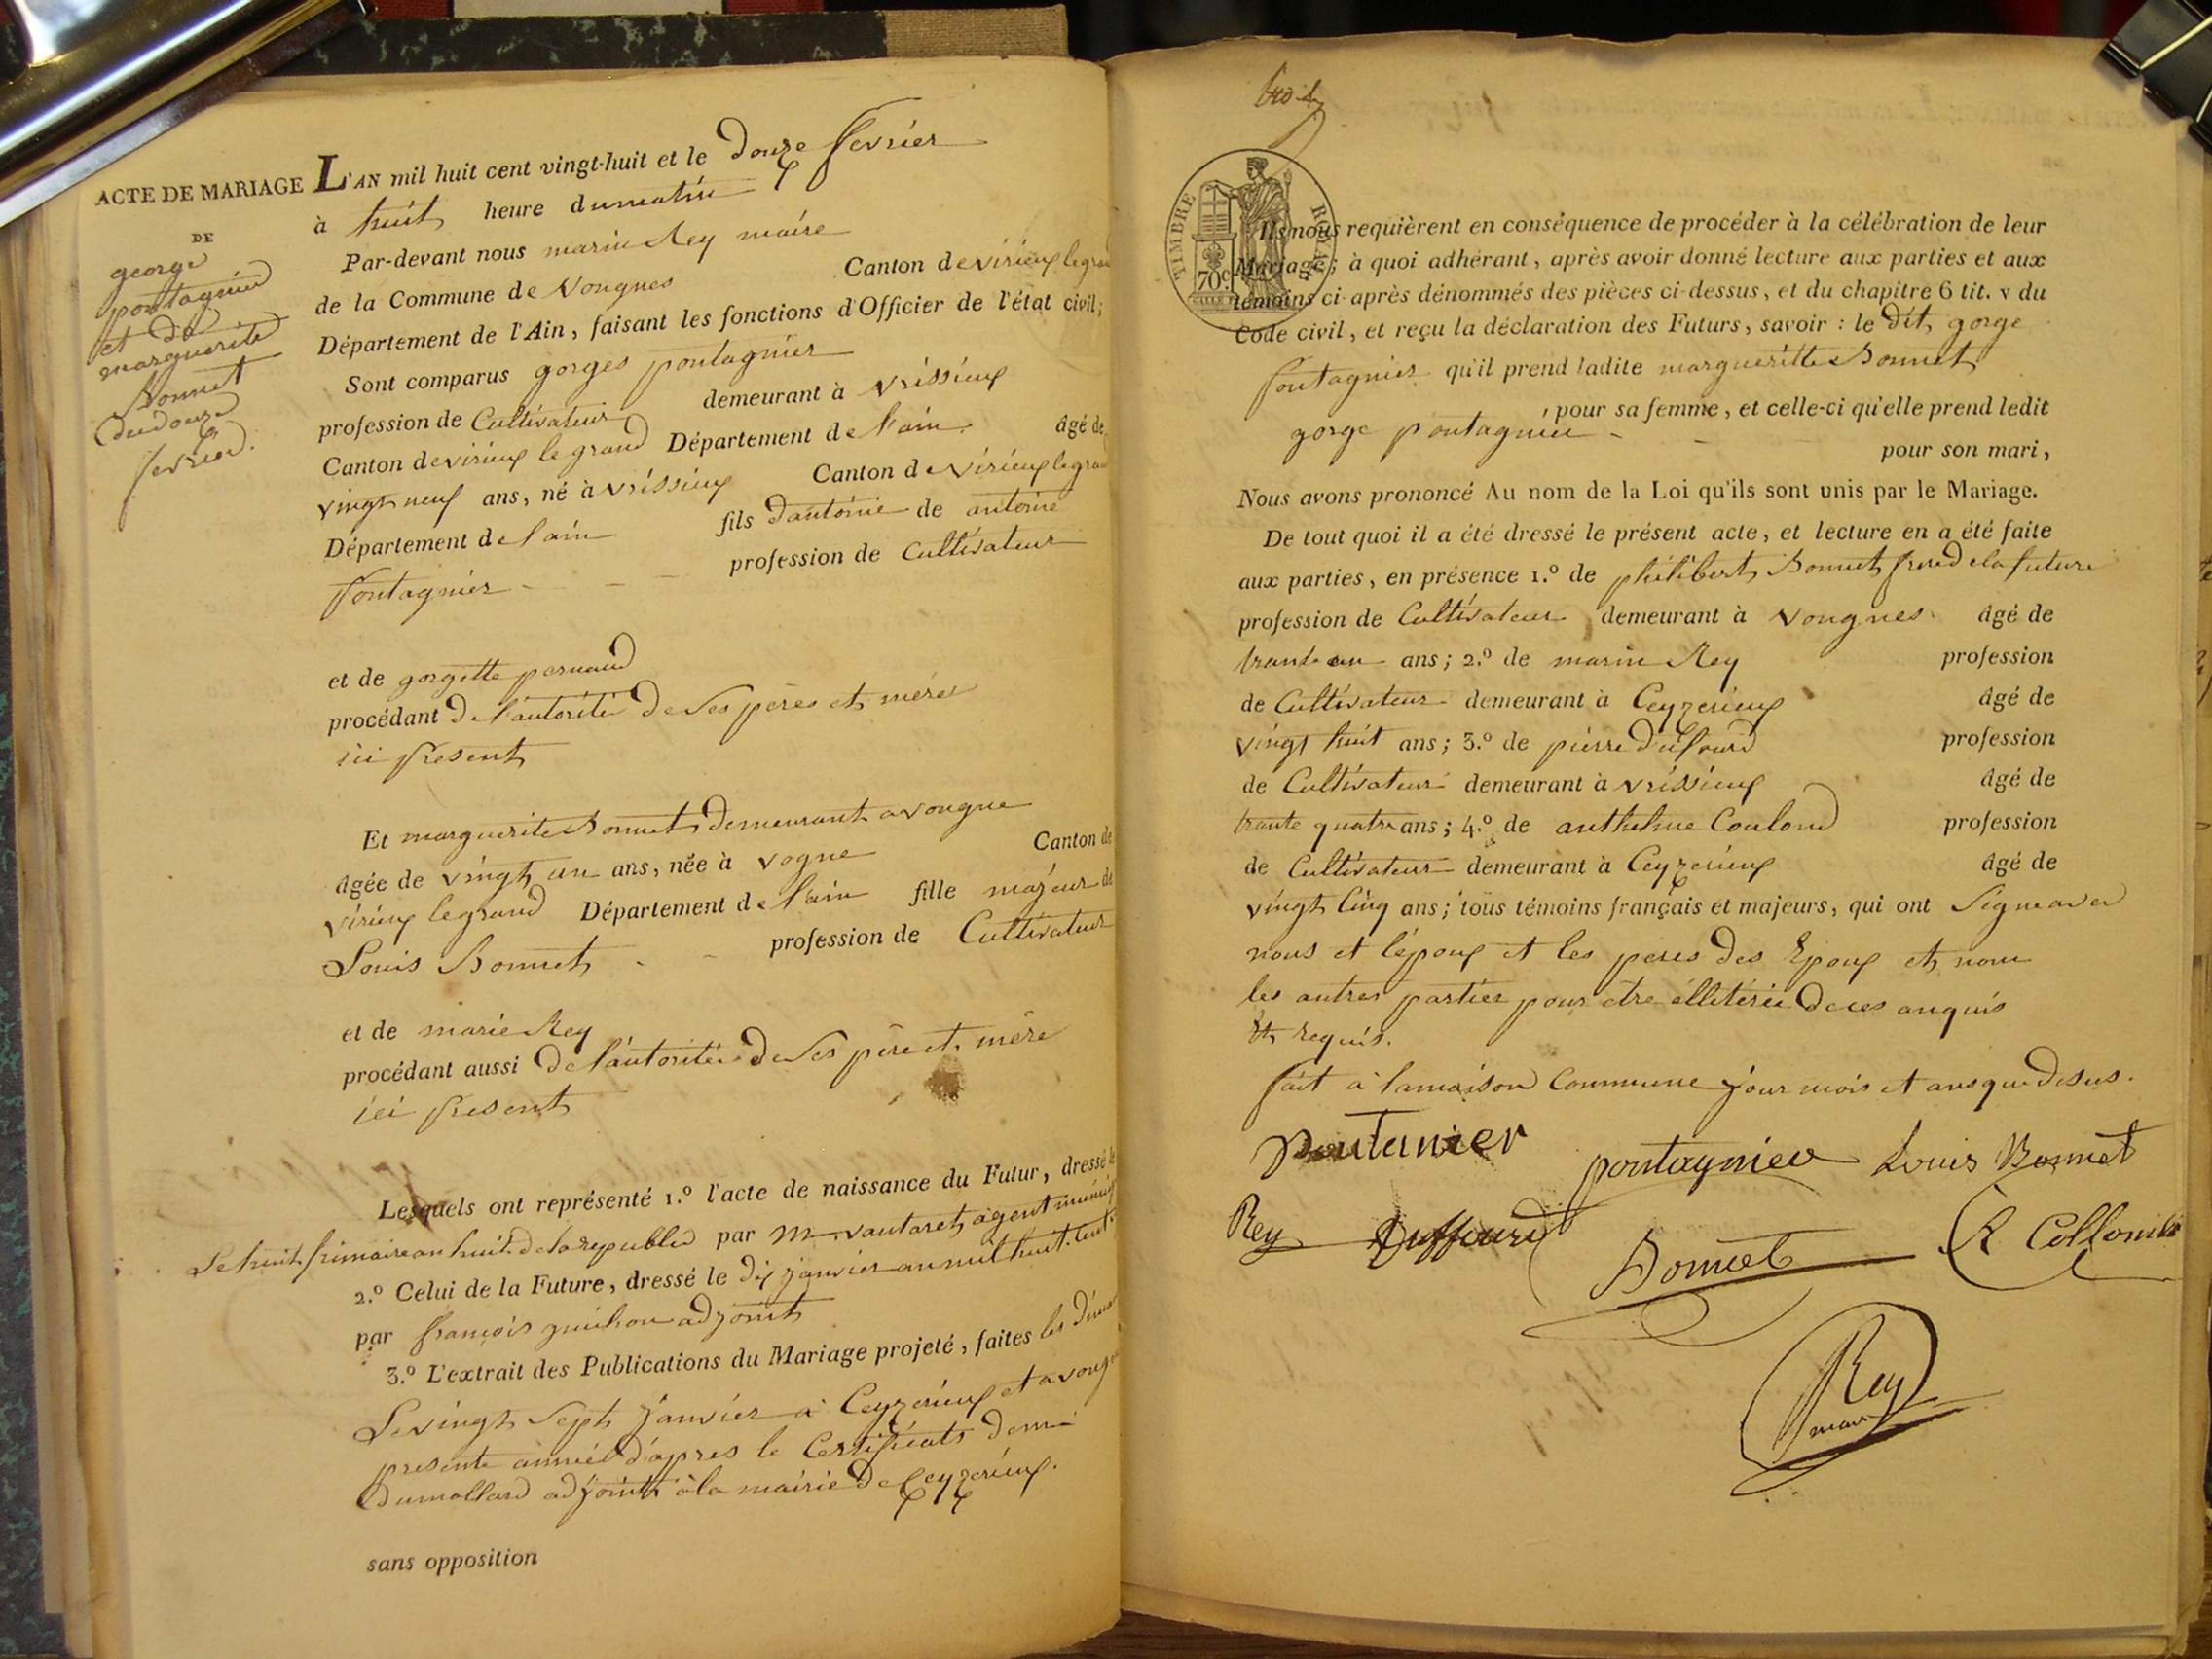 ACTE DE MARIAGE
DE
george
pontagnier
et de
marguerite
Bonnet
du douze
fevrier.
L'AN mil huit cent vingt-huit et le douze fevrier
à huit heure du matin
Par-devant nous marin Rey maire
de la Commune de Vongnes Canton de virieux le grand
Département de l'Ain, faisant les fonctions d'Officier de l'état civil;
Sont comparus gorges pontagnier
profession de Cultivateur demeurant à vrissieux
Canton de virieux le grand Département de l'ain âgé de
vingt neuf ans, né à vrissieux Canton de virieux le grand
Département de l'ain fils d'antoine de antoine
Pontagnier profession de Cultivateur
et de gorgette pernaud
procédant de l'autorité de ses pères et mères
ici présent
Et marguerite Bonnet demeurant a vongne
âgée de vingt un ans, née à vogne Canton de
virieux le grand Département de l'ain fille majeur de
Louis Bonnet profession de Cultivateur
et de marie Rey
procédant aussi de l'autorité de ses père et mère
ici présent
Lesquels ont représenté 1.º l'acte de naissance du Futur, dressé le
Le huit frimaire an huit de la republic par M. vautaret agent
2.º Celui de la Future, dressé le dix janvier an mil huit cent
par françois guichon adjoint
3.º L'extrait des Publications du Mariage projeté, faites les
Le vingt sept janvier à Ceyzerieux et a vongne
presente année d'apres le Certificats
Dumollard adjoint à la mairie de Ceyzerieux.
sans opposition
trois
TIMBRE ROYAL
70c
Ils nous requièrent en conséquence de procéder à la célébration de leur
Mariage; à quoi adhérant, après avoir donné lecture aux parties et aux
témoins ci-après dénommés des pièces ci-dessus, et du chapitre 6 tit. v du
Code civil, et reçu la déclaration des Futurs, savoir: le dit gorge
Pontagnier qu'il prend ladite margueritte Bonnet
, pour sa femme, et celle-ci qu'elle prend ledit
gorge pontagnier
pour son mari,
Nous avons prononcé Au nom de la Loi qu'ils sont unis par le Mariage.
De tout quoi il a été dressé le présent acte, et lecture en a été faite
aux parties, en présence 1.º de philibert Bonnet frere de la future
profession de Cultivateur demeurant à vongnes âgé de
trante un ans; 2.º de marin Rey profession
de Cultivateur demeurant à Ceyzerieux âgé de
vingt huit ans; 3.º de pierre dufourd profession
de Cultivateur demeurant à vrissieux âgé de
trante quatre ans; 4.º de anthelme Coulond profession
de Cultivateur demeurant à Ceyzerieux âgé de
vingt cinq ans; tous témoins français et majeurs, qui ont signe avec
nous et l'époux et les peres des Epoux et non
les autres parties pour etre illitérée de ces anquis
et requis.
fait à la maison Commune jour mois et ans que desus.
Poutanier
pontagnier
Louis Bonnet
Rey
Duffourd
Bonnet
Collomb
Rey
maire